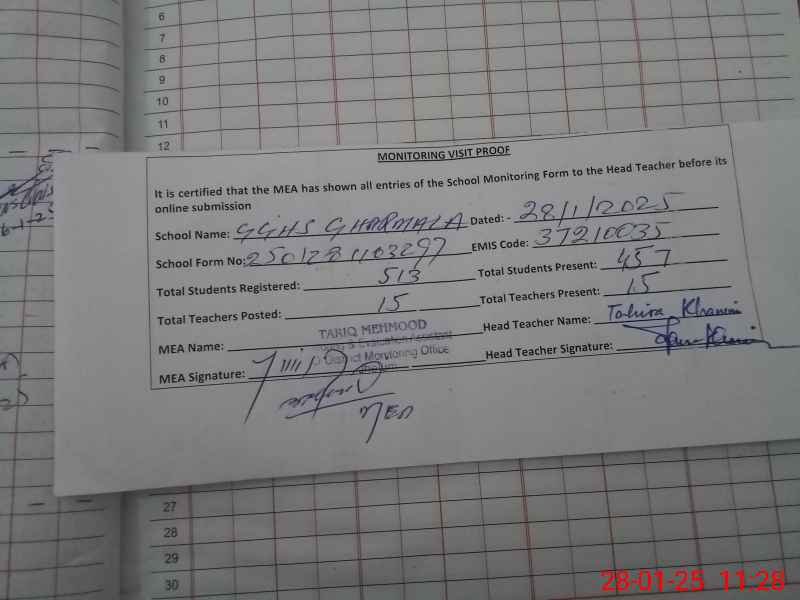 6
7
8
9
10
11
12
MONITORING VISIT PROOF
It is certified that the MEA has shown all entries of the School Monitoring Form to the Head Teacher before its
online submission
School Name: GGHS GHARMALA Dated:- 28/1/2025
School Form No: EMIS Code: 37210035
Total Students Registered: 513 Total Students Present: 457
Total Teachers Posted: 15 Total Teachers Present: 15
MEA Name: TARIQ MEHMOOD Head Teacher Name: Tahira Khanum
Evaluation Assistant
District Monitoring Office
MEA Signature: Head Teacher Signature:
MEA
27
28
29
30
28-01-25 11:28